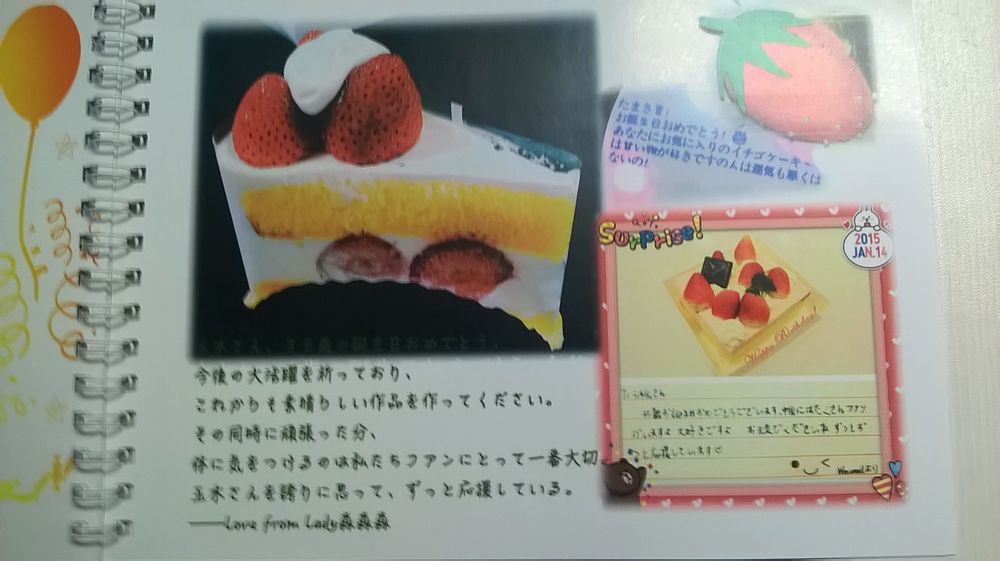 玉木さん、35歳の誕生日おめでとう。
今後の大活躍を祈っており、
これからも素晴らしい作品を作ってください。
その同時に頑張った分、
体に気をつけるのは私たちファンにとって一番大切
玉木さんを誇りに思って、ずっと応援している。
——Love from Lady森森森
たまき君：
お誕生日おめでとう！
あなたにお気に入りのイチゴケーキ～
は甘い物が好きですの人は運気も悪くは
ないの!
Surprise!
2015
JAN.14
Happy Birthday!
さん
おめでとうございます。中国にはたくさんファン
がいますよ 大好きですよ
と応援しています
より